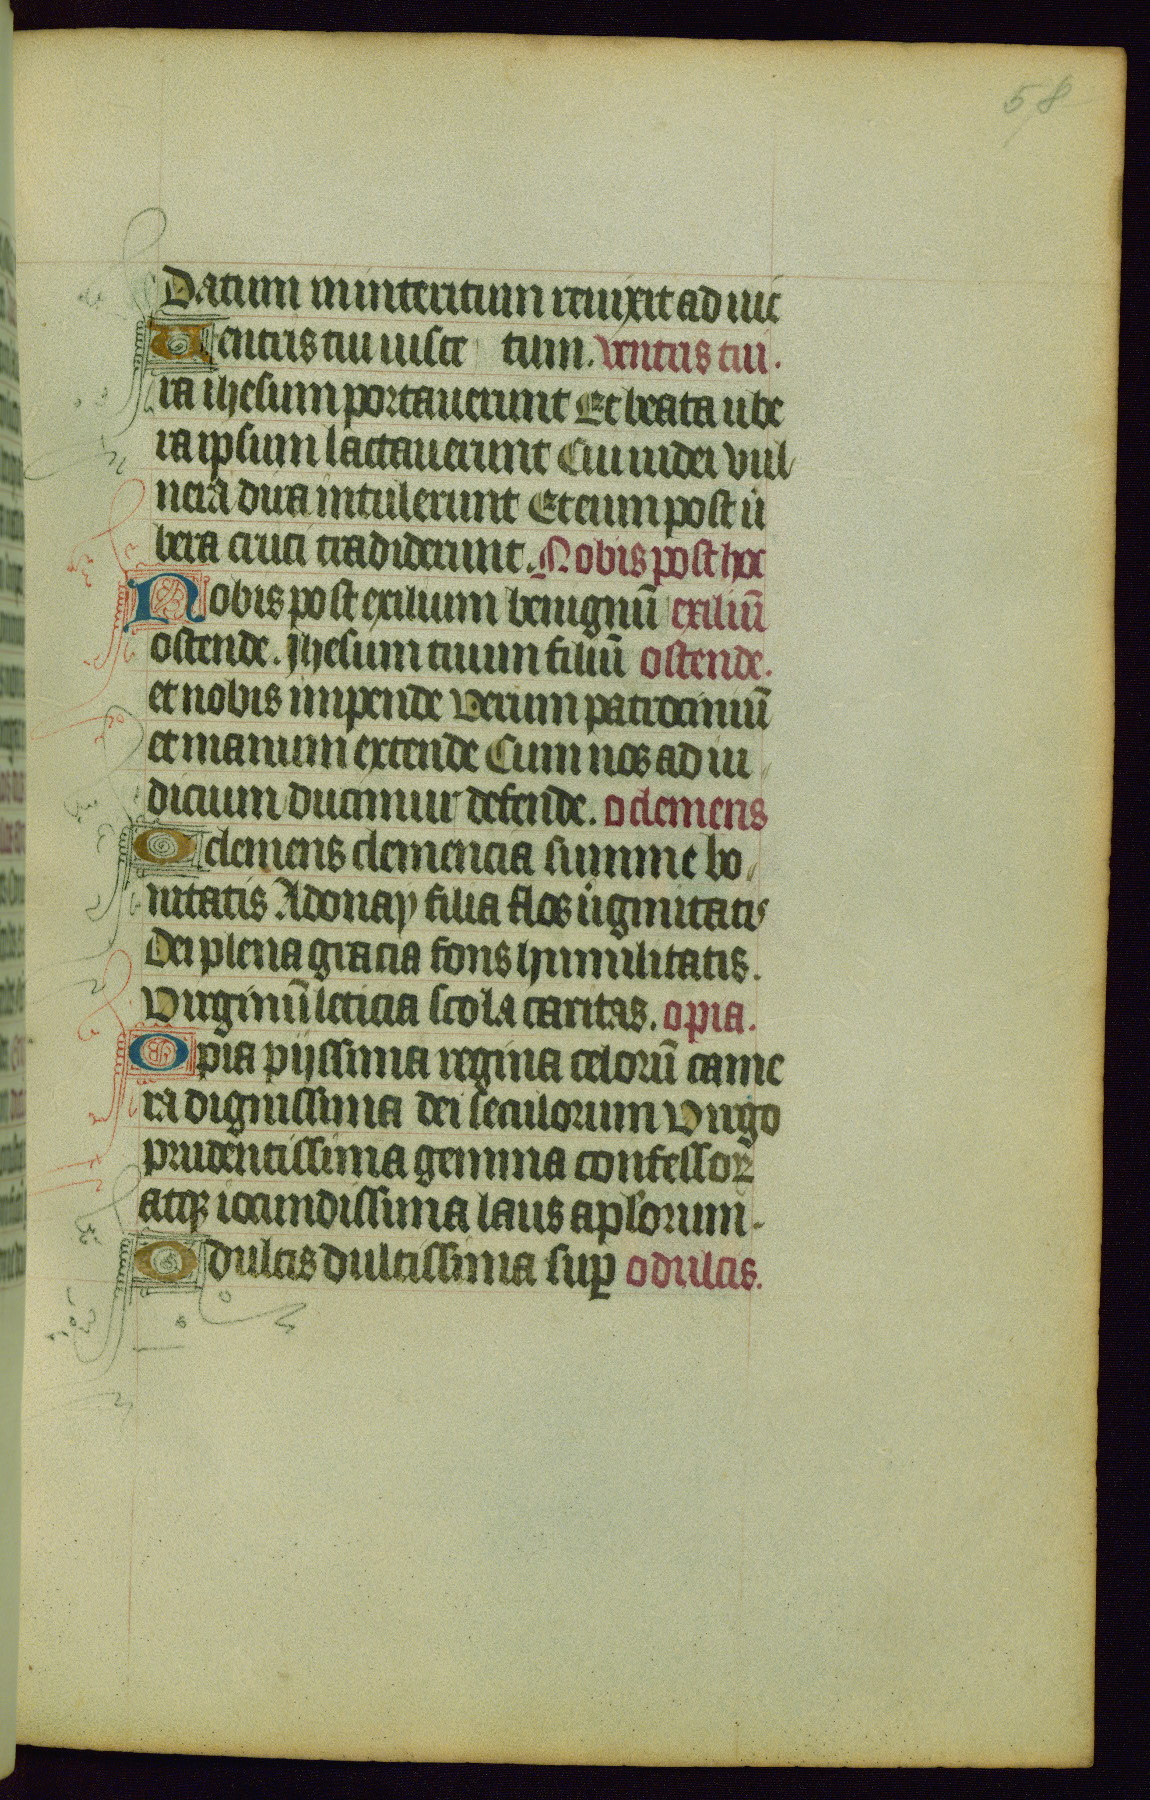 58
Datum in interitum reuixit ad uic
Uentris tui uisce tum. ventris tui.
ra ihesum portauerunt Et beata ube
ra ipsum lactauerunt Cui iudei vul
nera dura intulerunt Et eum post ů
bera cruci tradiderunt. Nobis post hoc
Nobis post exilium benignũ exiliũ
ostende. Jhesum tuum filiũ ostende.
et nobis impende Verum patrociniũ
et manum extende Cum nos ad iu
dicium ducimur defende. o clemens
O clemens clemencia summe bo
nitatis Adonay filia flos ůginitatis
Dei plena gracia fons humilitatis.
Virginũ leticia scola caritas. o pia.
O pia pijssima regina celorũ came
ra dignissima dei seculorum Virgo
prudentissima gemma confessoꝝ
atqꝫ iocundissima laus aplorum.
O dulcis dulcissima suꝑ o dulcis.